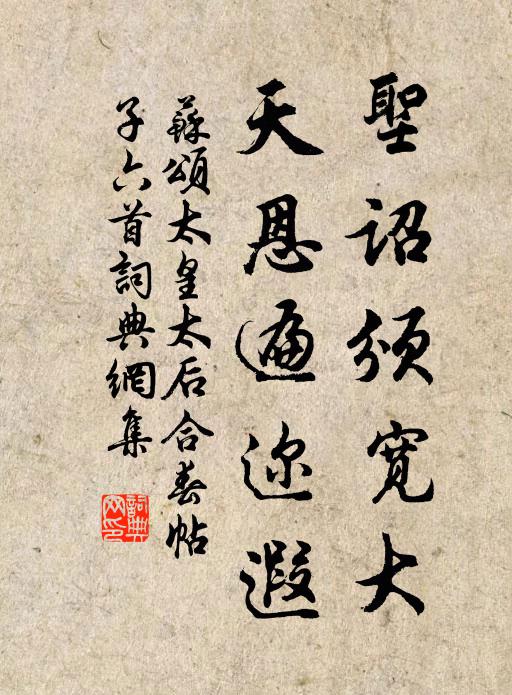 聖詔頒寬大
天恩遍邇遐
蘇頌太皇太后合春帖
子六首詞典網集
詞典网印